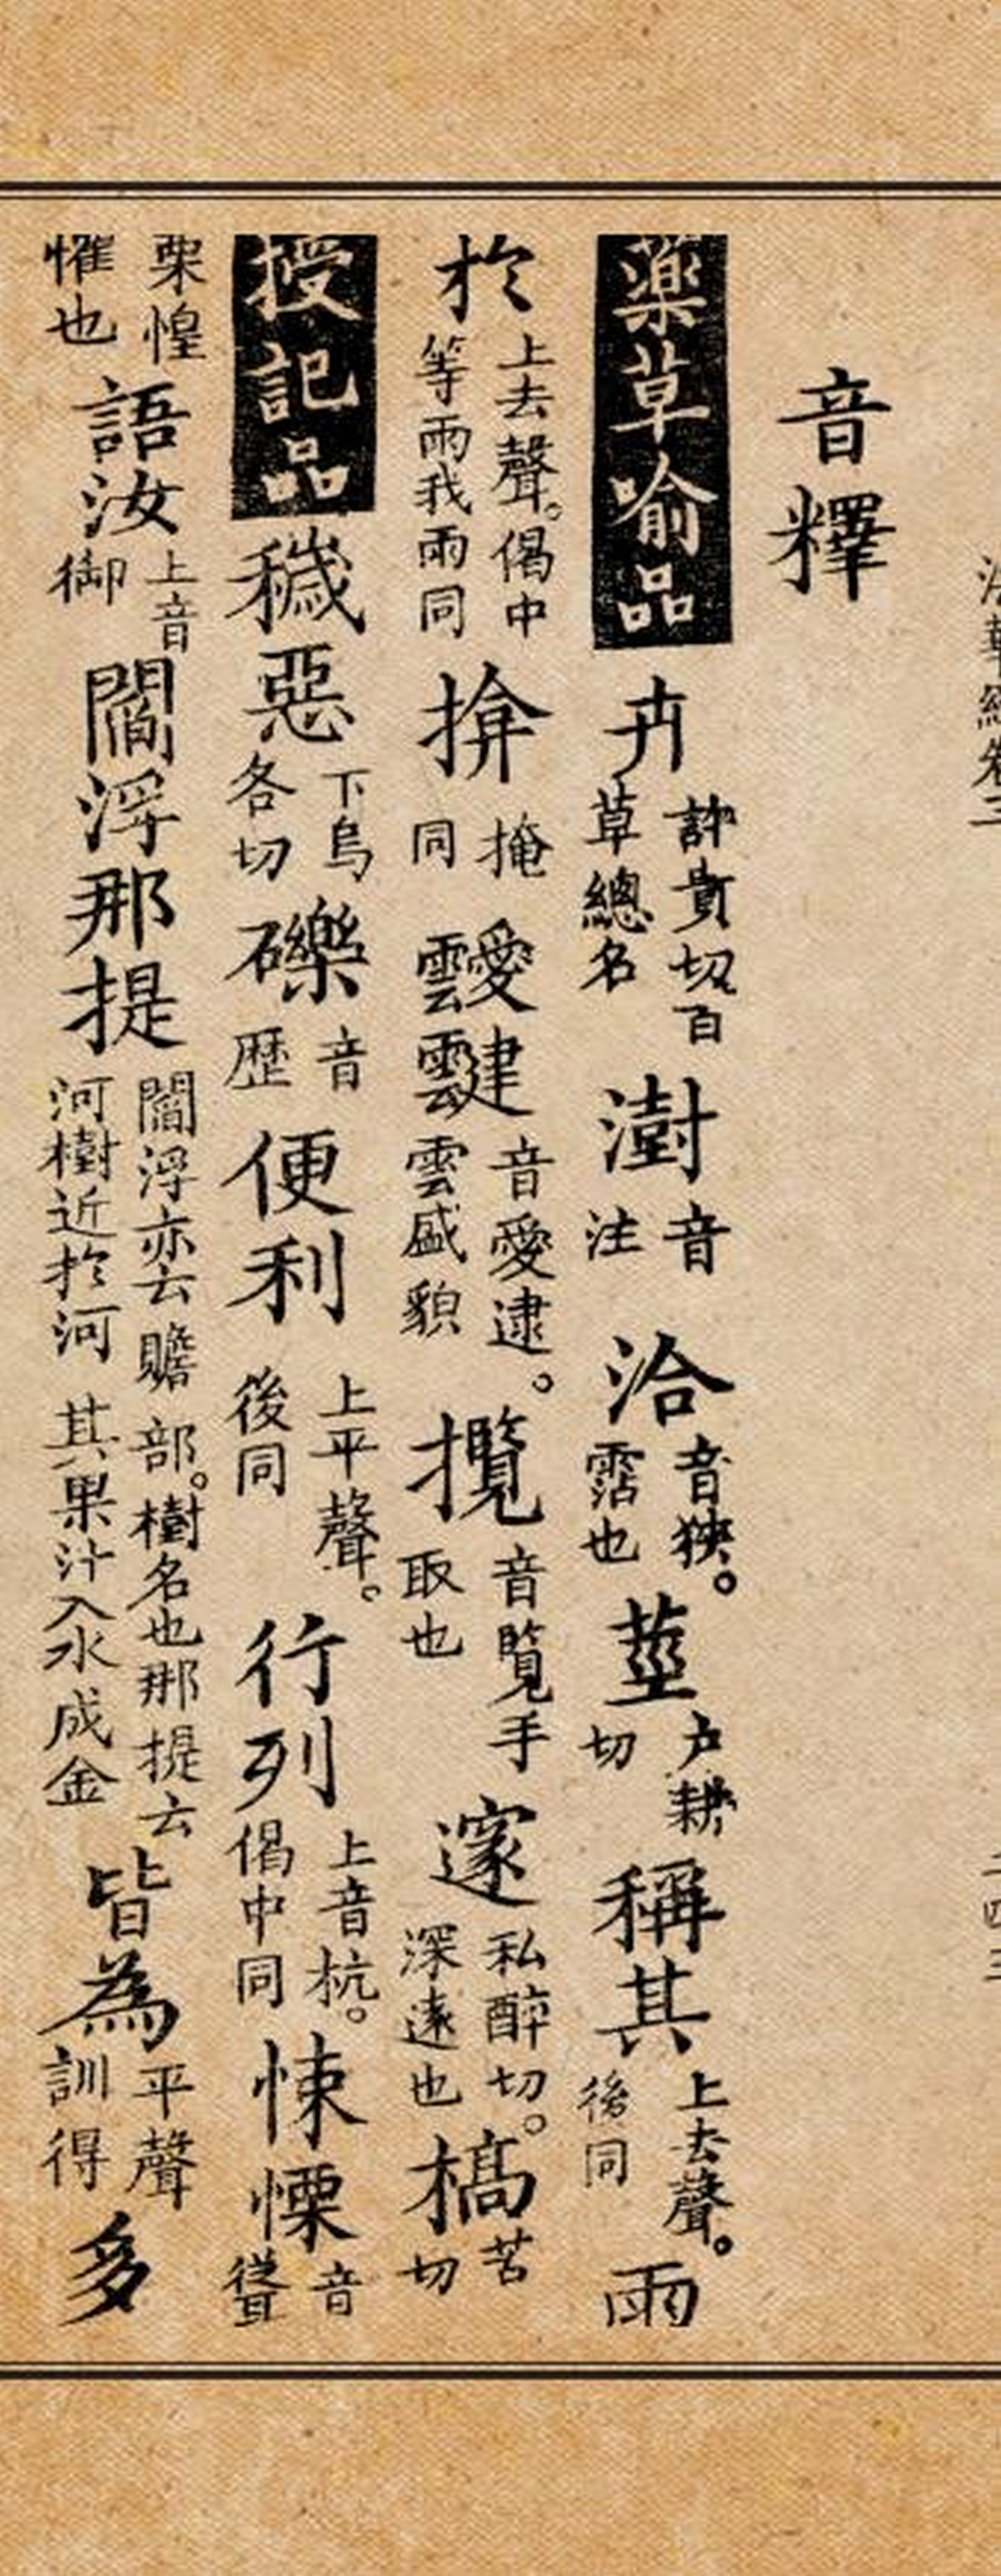 音釋
藥草喻品 卉 許貴切百草總名 澍 音注 洽 音狹。霑也 莖 户耕切 稱其 上去聲。後同 雨
於 上去聲。偈中等雨我雨同 揜 掩同 靉靆 音愛逮。雲盛貌 攬 音覽手取也 邃 私醉切。深遠也 槁 苦切
授記品 穢惡 下烏各切 礫 音歴 便利 上平聲。後同 行列 上音杭。偈中同 悚慄 音聳
栗惶懼也 語汝 上音御 閻浮那提 閻浮亦云贍部。樹名也那提云河樹近於河其果汁入水成金 皆為 平聲訓得 多